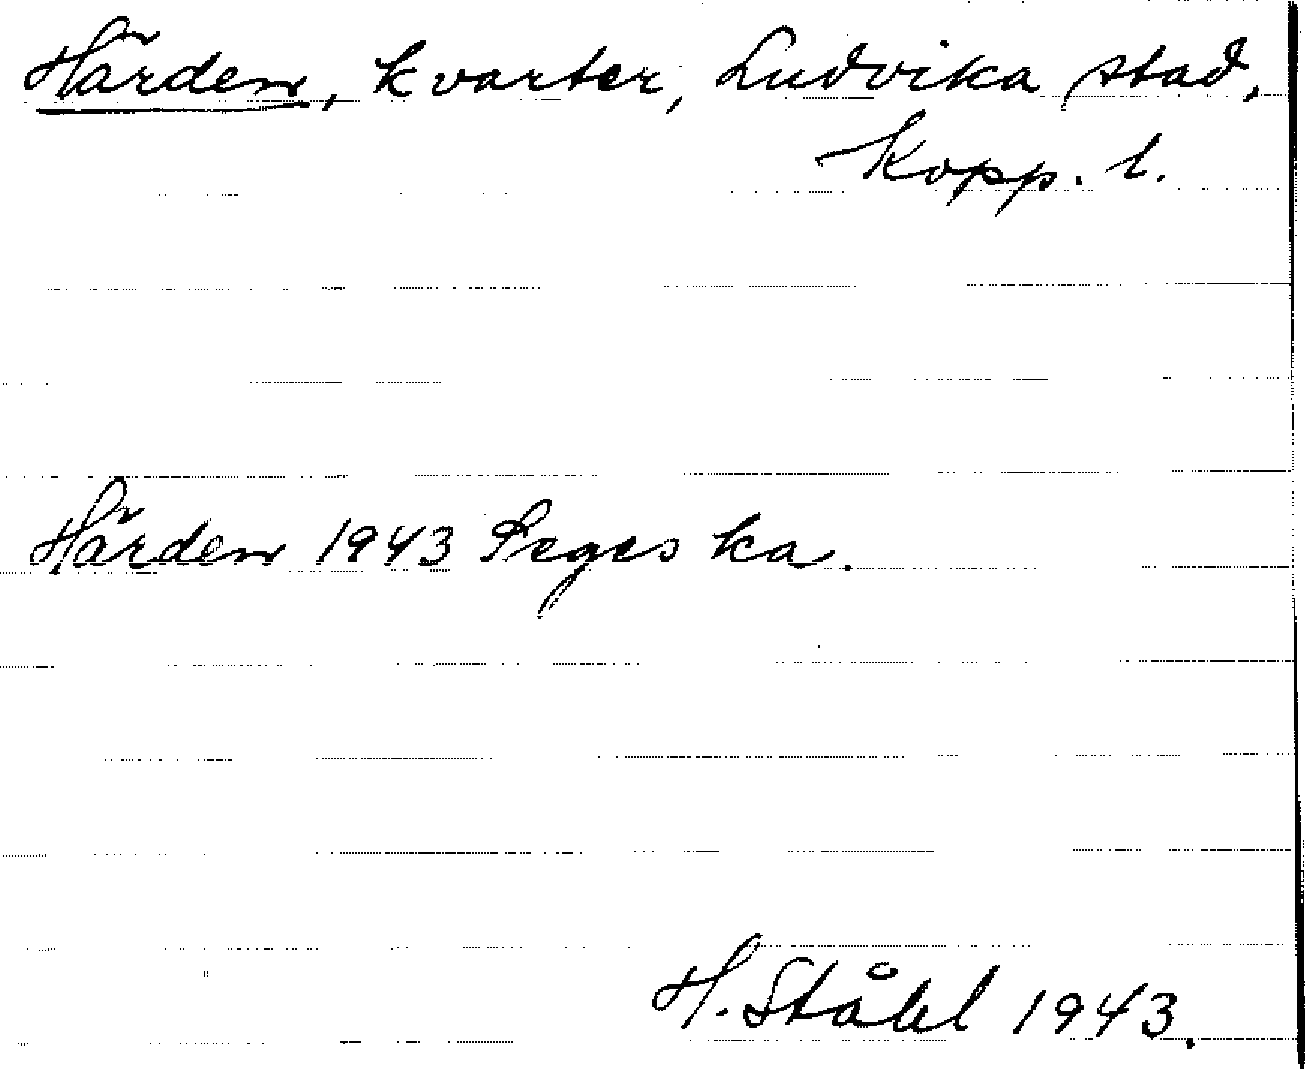 Härden, kvarter, Ludvika stad,
Kopp. l.
Härden 1943 ka.
H. Ståhl 1943.